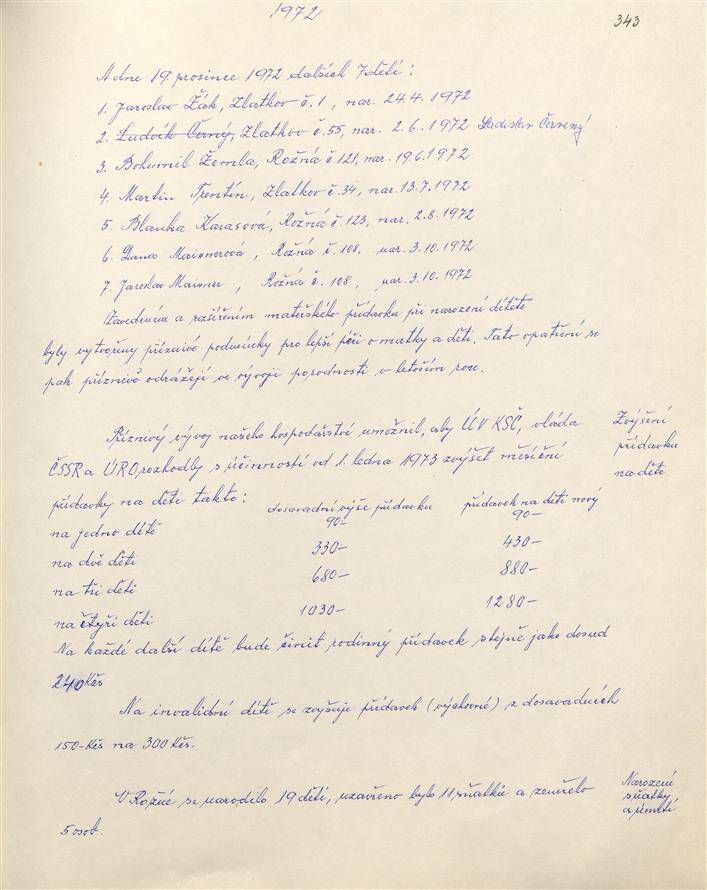 1972
343
A dne 19. prosince 1972 dalších 7 dětí:
1. Jaroslav Žák, Zlatkov č. 1, nar. 24.4. 1972
2. Ludvík Černý, Zlatkov č. 55, nar. 2.6. 1972 Ladislav Červený
3. Bohumil Žemla, Rožná č 121, nar. 19.6.1972
4. Martin Trentin, Zlatkov č. 34, nar. 13.7. 1972
5. Blanka Karasová, Rožná č. 123, nar. 2.8. 1972
6. Dana Maisnerová, Rožná č. 108, nar. 3.10. 1972
7. Jaroslav Maisner, Rožná č. 108, nar. 3.10. 1972
Zavedením a rozšířením mateřského přídavku při narození dítěte
byly vytvořeny příznivé podmínky pro lepší péči o matky a děti. Tato opatření se
pak příznivě odrážejí ve vývoji porodnosti v letošním roce.
Příznivý vývoj našeho hospodářství umožnil, aby ÚV KSČ, vláda
ČSSR a ÚRO, rozhodly s účinností od 1. ledna 1973 zvýšit měsíční
přídavky na děti takto:
Zvýšení
přídavku
na děte
dosavadní výše přídavku přídavek na děti nový
na jedno dítě 90- 90-
na dvě děti 330- 430-
na tři děti 680- 880-
na čtyři děti 1030- 1280-
Na každé další dítě bude činit rodinný přídavek stejně jako dosud
240 Kčs
Na invalidní dítě se zvyšuje přídavek (výchovné) z dosavadních
150- Kčs na 300 Kčs.
V Rožné se narodilo 19 dětí, uzavřeno bylo 11 sňatků a zemřelo
5 osob.
Narození
sňatky
a úmrtí